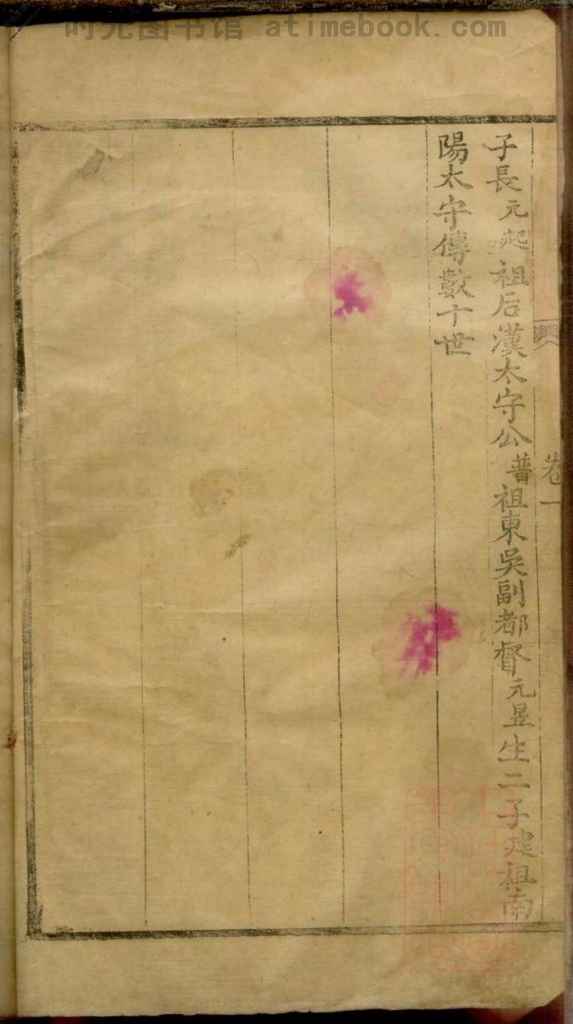 时光图书馆 atimebook.com
卷一
子長元起祖后漢太守公普祖東吳副都督元昱生二子建祖南
陽太守傳數十世